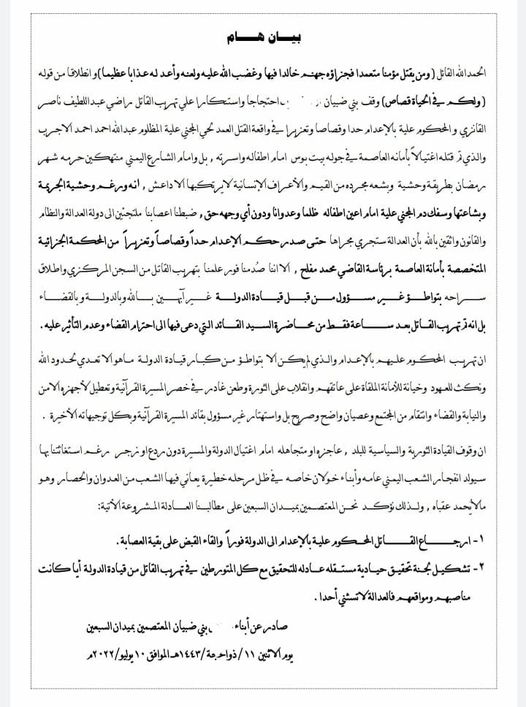 بيـــان هـــام
الحمد الله القائل ( ومن يقتل مؤمنا متعمدا فجزاؤه جهنم خالدا فيها وغضب الله عليه ولعنه وأعد له عذابا عظيما ) وانطلاقا من قوله
( ولكم في الحياة قصاص ) وقف بني ضبيان احتجاجا واستنكارا على تهريب القاتل راضي عبداللطيف ناصر
القانزي والمحكوم علية بالإعدام حدا وقصاصا وتعزيرا في واقعة القتل العمد بحق المجني علية المظلوم عبدالله احمد احمد الاجرب
والذي تم قتله اغتيالاً بأمانه العاصمة في جوله بيت بوس امام اطفاله واسرته , بل وامام الشارع اليمني منتهكين حرمه شهر
رمضان بطريقة وحشية وبشعه مجرده من القيم والأعراف الإنسانية لا يرتكبها الا داعش , انه ورغم وحشية الجريمة
وبشاعتها وسفك دم المجني علية امام اعين اطفاله ظلما وعدوانا ودون أي وجهه حق , ضبطنا اعصابنا ملتجئين الى دولة العدالة والنظام
والقانون واثقين بالله بأن العدالة ستجري مجراها حتى صدر حكم الإعدام حداً وقصاصاً وتعزيراً من المحكمة الجزائية
المتخصصة بأمانة العاصمة برئاسة القاضي محمد مفلح , الا اننا صُدمنا فور علمنا بتهريب القاتل من السجن المركزي واطلاق
سراحه بتواطؤ غير مسؤول من قبل قيادة الدولة غير آبهين بالله وبالدولة وبالقضاء
بل انه تم تهريب القاتل بعد ساعة فقط من محاضرة السيد القائد التي دعى فيها الى احترام القضاء وعدم التأثير عليه .
ان تهريب المحكوم عليهم بالإعدام والذي لم يكن الا بتواطؤ من كبار قيادة الدولة ماهو الا تعدي لحدود الله
ونكث للعهود وخيانة للأمانة الملقاة على عاتقهم وانقلاب على الثورة وطعن غادر في خصر المسيرة القرآنية وتعطيل لأجهزة الامن
والنيابة والقضاء وانتقام من المجتمع وعصيان واضح وصريح بل واستهتار غير مسؤول بقائد المسيرة القرآنية وبكل توجيهاته الأخيرة .
ان وقوف القيادة الثورية والسياسية للبلد , عاجزه او متجاهله امام اغتيال الدولة والمسيرة دون ردع او زجر رغم استغاثتنا بها
سيولد انفجار الشعب اليمني عامه وأبناء خولان خاصه في ظل مرحله خطيرة يعاني فيها الشعب من العدوان والحصار وهو
مالا يحمد عقباه , ولذلك نؤكد نحن المعتصمين بميدان السبعين على مطالبنا العادلة المشروعة الآتية:
١- ارجاع القاتل المحكوم علية بالإعدام الى الدولة فوراً والقاء القبض على بقية العصابة .
٢- تشكيل لجنة تحقيق حيادية مستقله عادله للتحقيق مع كل المتورطين في تهريب القاتل من قيادة الدولة أيا كانت
مناصبهم ومواقعهم فالعدالة لا تستثني أحدا .
صادر عن أبناء بني ضبيان المعتصمين بميدان السبعين
يوم الاثنين ١١/ذوالحجة/١٤٤٣هـ الموافق ١٠يوليو/٢٠٢٢م